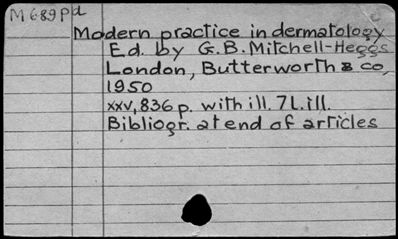 M689pd
Modern practice in dermatology
Ed. by G.B. Mitchell-Heggs
London, Butterworth & co,
1950
xxv, 836 p. with ill. 7 l. ill.
Bibliogr. at end of articles